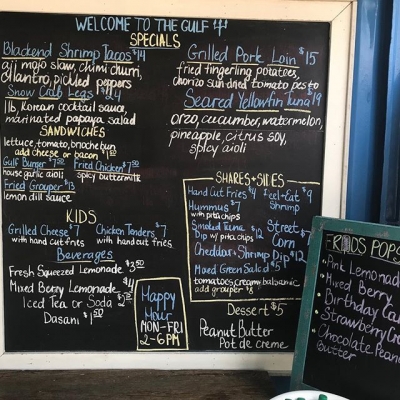 WELCOME TO THE GULF
SPECIALS
Blackend Shrimp Tacos $14
aji mojo slaw, chimi churri,
cilantro, pickled peppers
Snow Crab Legs
1lb, Korean cocktail sauce,
marinated papaya salad
Grilled Pork Loin $15
fried fingerling potatoes,
chorizo sun-dried tomato pesto
Seared Yellowfin Tuna $19
orzo, cucumber, watermelon,
pineapple, citrus soy,
spicy aioli
SANDWICHES
lettuce, tomato, brioche bun
add cheese or bacon
Gulf Burger $7.50
house garlic aioli
Fried Chicken $7.50
spicy buttermilk
Fried Grouper $13
lemon dill sauce
KIDS
Grilled Cheese $7
with hand cut fries
Chicken Tenders $7
with hand cut fries
Beverages
Fresh Squeezed Lemonade $3.50
Mixed Berry Lemonade $4
Iced Tea or Soda
Dasani $1.50
Happy
Hour
MON-FRI
2-6PM
SHARES+SIDES
Hand Cut Fries $4
Hummus $7
with pita chips
Smoked Tuna $12
Dip w/ pita chips
Peel+Eat $9
Shrimp
Street
Corn
Cheddar+Shrimp Dip $12
Mixed Green Salad $5
tomatoes, creamy balsamic
add grouper
Dessert $5
Peanut Butter
Pot de creme
POPS
Pink Lemonade
Mixed Berry
Birthday
Strawberry
Chocolate
Butter